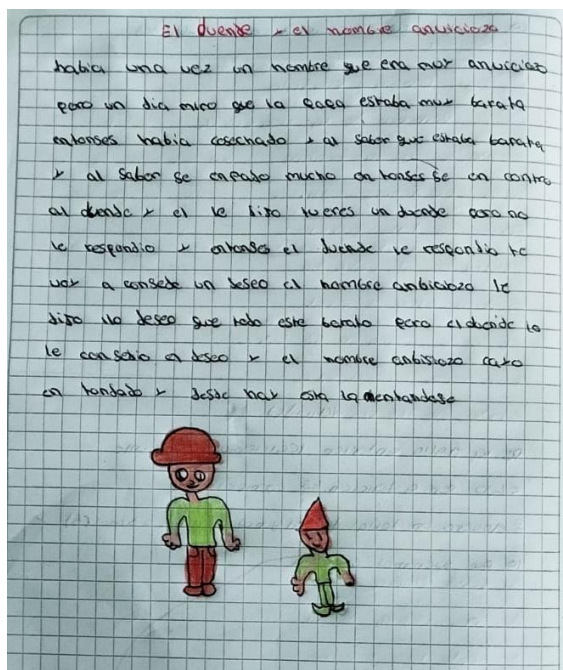 El duende y el hombre anviciozo
habia una vez un hombre que era muy anviciozo
pero un dia miro que la papa estaba muy barata
entonses habia cosechado y al saber que estaba barata
y al saber se enfado mucho en tonses se en contro
al duende y el le dijo tu eres un duende pero no
le respondio y entonses el duende le respondio te
voy a consede un deseo el hombre anbiciozo le
dijo yo deseo que todo este barato pero el duende lo
le consedio el deseo y el hombre anbisiozo cayo
en y desde hay esta lamentandose